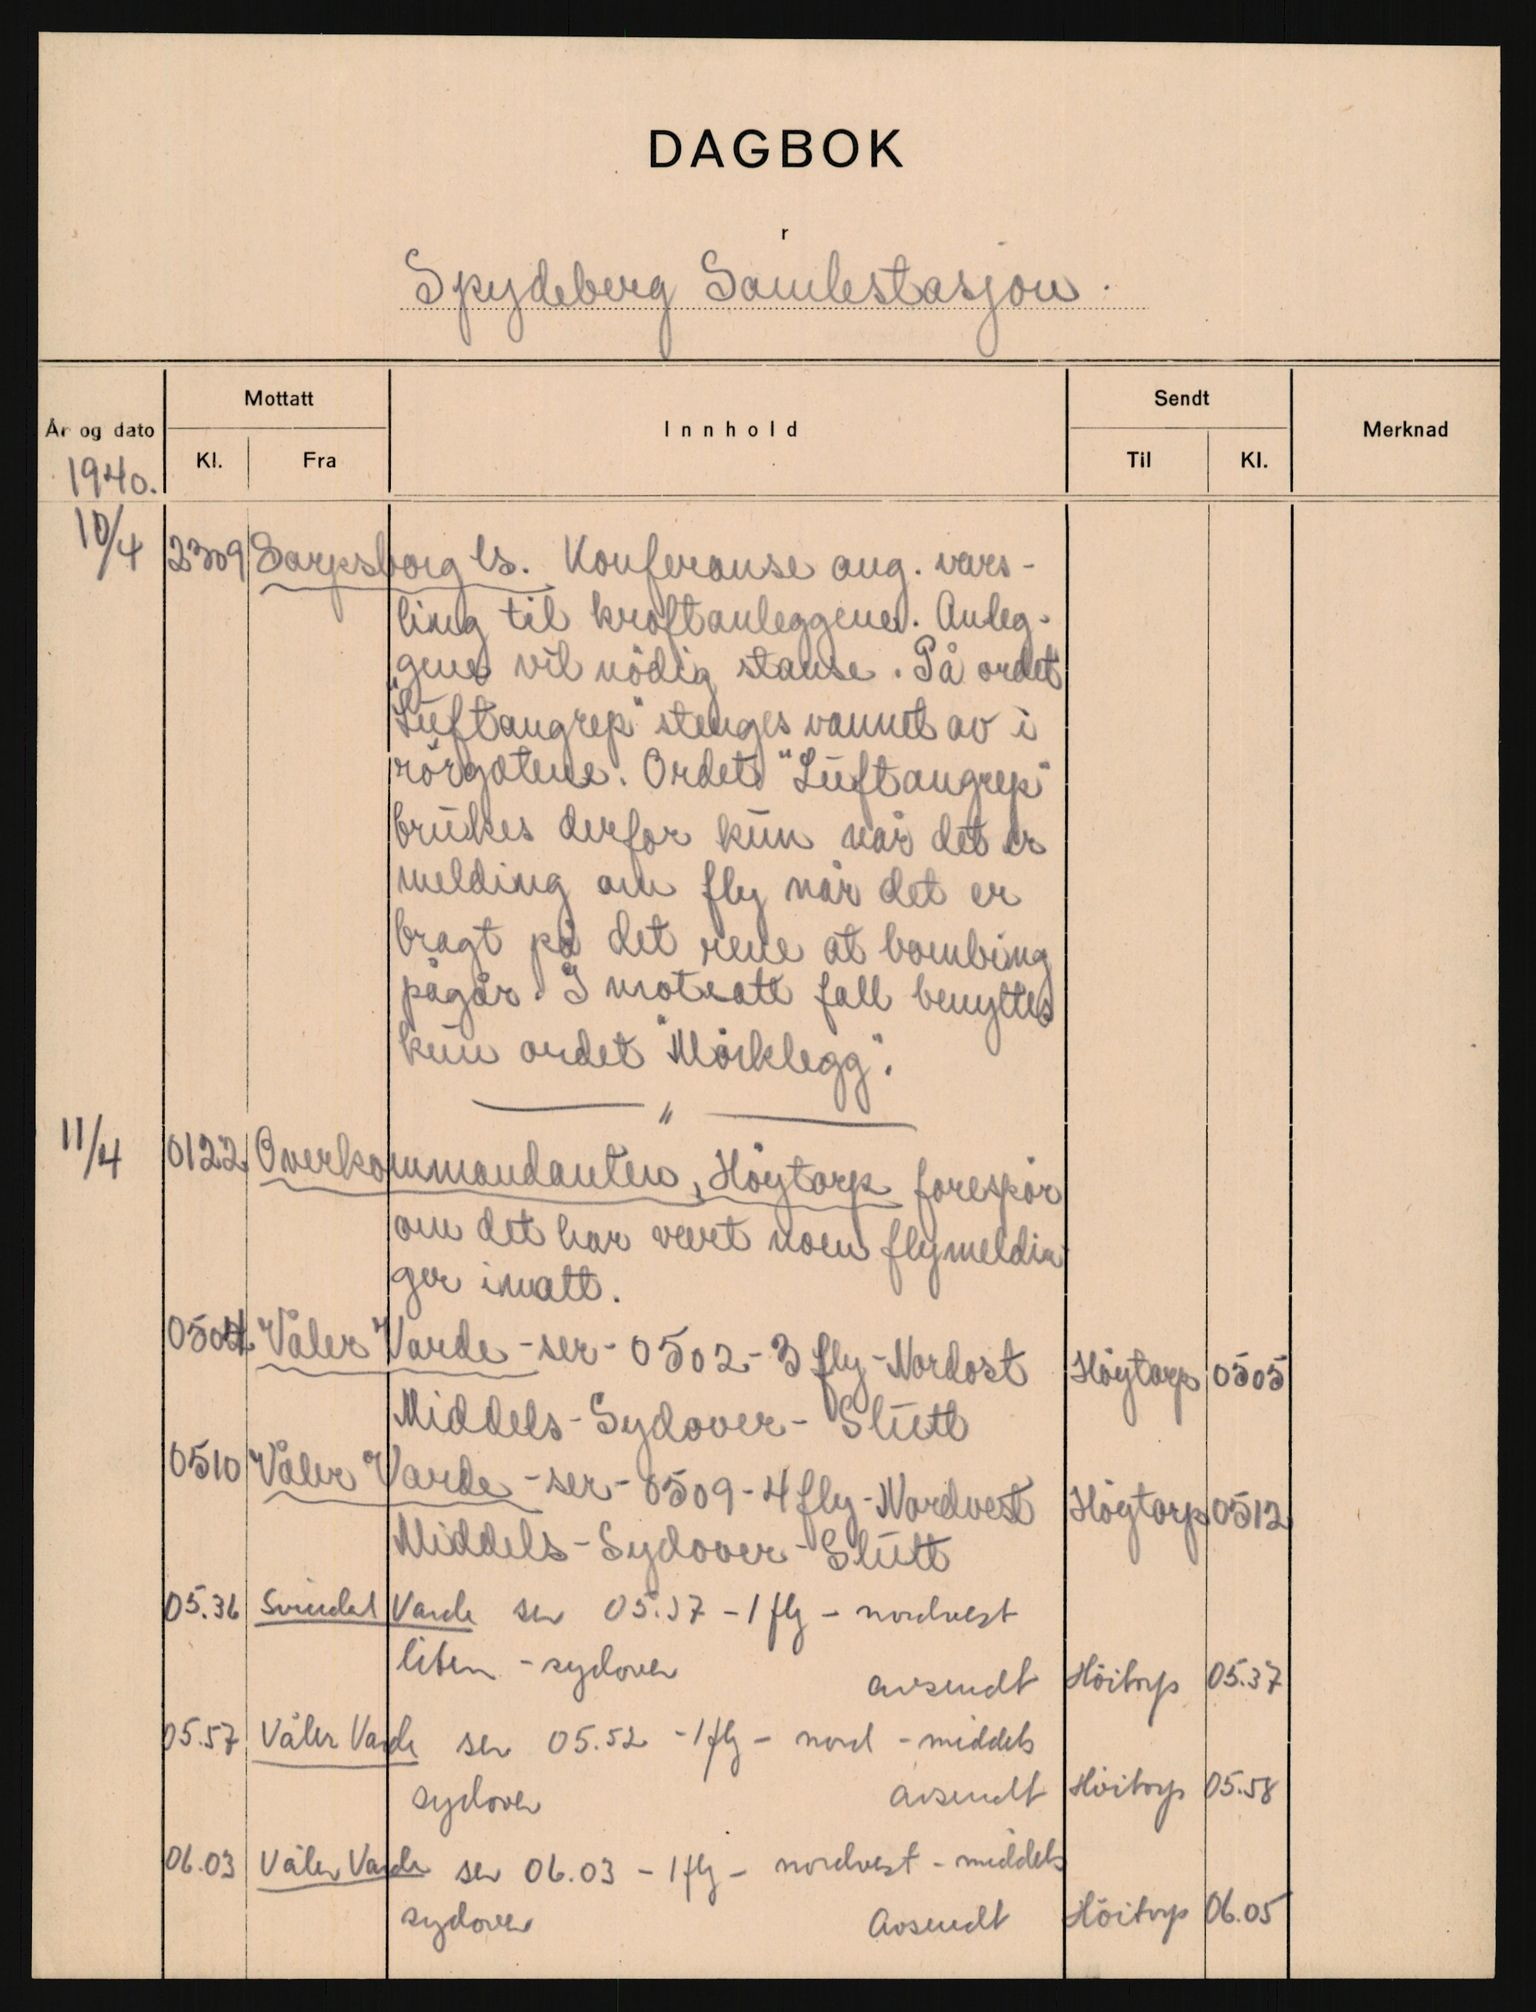 DAGBOK
r
Spydeberg Samlestasjon.
Mottatt
Sendt
År og dato
Innhold
Merknad
Kl.
Fra
Til
Kl.
1940.
10/4 2309 Sarpsborg ls. Konferanse ang. vars-
ling til kraftanleggene. Anleg-
gene vil nödig stanse. På ordet
"Luftangrep" stenges vannet av i
rörgatene. Ordet "Luftangrep"
brukes derfor kun når det er
melding om fly når det er
bragt på det rene at bombing
pågår. I motsatt fall benyttes
kun ordet "Mörklegg".
"
11/4 0122 Overkommandanten, Höytorp forespör
om det har vært noen flymeldin
ger inatt.
0504 Våler Varde - ser - 0502 - 3 fly - Nordost Höytorp 0505
Middels - Sydover - Slutt
0510 Våler Varde - ser - 0509 - 4 fly - Nordvest Höytorp 0512
Middels - Sydover - Slutt
05.36 Svindal Varde ser 05.37 - 1 fly - nordvest
liten - sydover avsendt Höitorp 05.37
05.57 Våler Varde ser 05.52 - 1 fly - nord - middels
sydover avsendt Höitorp 05.58
06.03 Våler Varde ser 06.03 - 1 fly - nordvest - middels
sydover Avsendt Höitorp 06.05